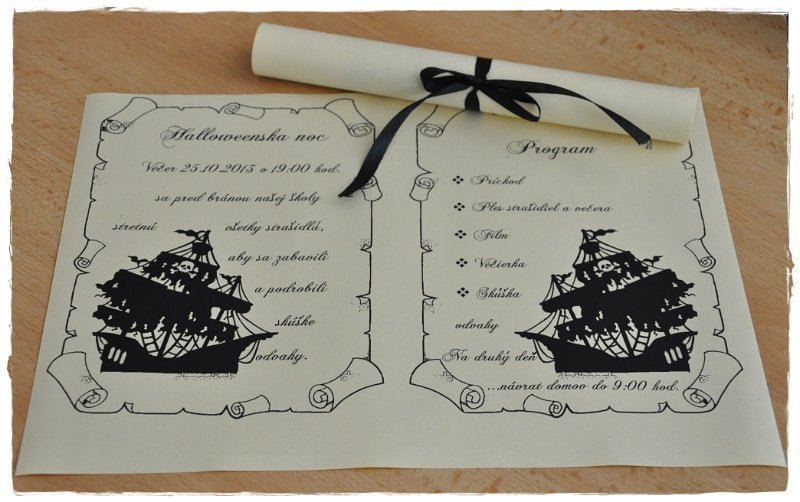 Halloweenska noc
Večer 25.10.2013 o 19:00 hod.
sa pred bránou našej školy
stretnú všetky strašidlá,
aby sa zabavili
a podrobili
skúške
odvahy.
Program
❖ Príchod
❖ Ples strašidiel a večera
❖ Film
❖ Večierka
❖ Skúška
odvahy
Na druhý deň
...návrat domov do 9:00 hod.